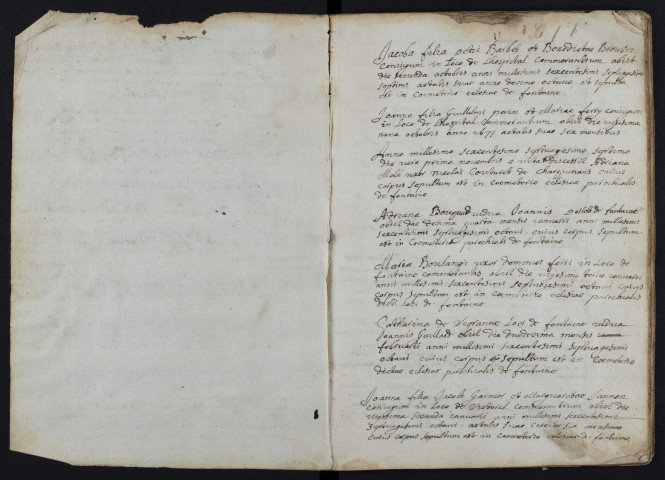 1677
Jacoba filia petri Barbé et Benedictae
coniugum in Loco de Lhospital Commorantium obiit
die secunda octobris anni millesimi sexcentesimi septuagesimi
septimi aetatis suae anno decimo octavo et sepulta
est in coemeterio eclesiae de fontaine
Joanna filia Guillelmi et Mariae ferry coniugum
in Loco de Lhospital Commorantium obiit die vigesima
nona octobris anno 1677 aetatis suae sex mensibus
Anno millesimo sexcentesimo septuagesimo septimo
die vero prima novembris e vita discessit Adriana
uxor Nicolai de cuius
corpus sepultum est in coemeterio eclesiae parochialis
de fontaine
Adriana vidua Joannis de fontaine
obiit die decima quarta mensis ianuarii anni millesimi
sexcentesimi septuagesimi octavi cuius corpus sepultum
est in Coemeterio parochiali de fontaine
Maria Boulanger uxor dominici in Loco de
fontaine commorantis obiit die vigesimo ianuarii
anni millesimi sexcentesimi septuagesimi octavi cuius
corpus sepultum est in coemeterio eclesiae parochialis
dicti Loci de fontaine
Catharina de Loci de fontaine vidua
Joannis obiit die duodecima mensis
februarii anni millesimi sexcentesimi septuagesimi
octavi cuius corpus sepultum est in Coemeterio
dictae eclesiae parochialis de fontaine
Joanna filia Jacobi Garnier et Margaretae
coniugum in Loco de commorantium obiit die
vigesima secunda ianuarii anni millesimi sexcentesimi
septuagesimi octavi aetatis suae sex mensium
cuius corpus sepultum est in coemeterio eclesiae de fontaine